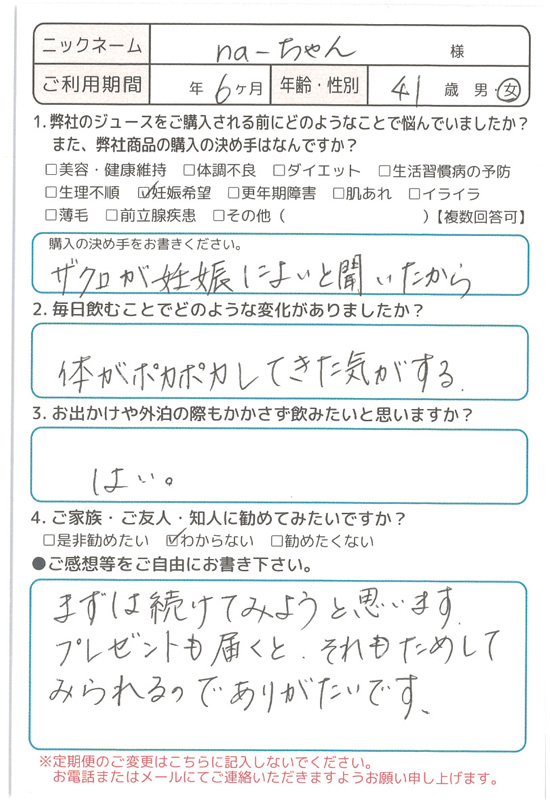 ニックネーム na-ちゃん 様
ご利用期間 年 6ヶ月 年齢・性別 41 歳 男・女
1. 弊社のジュースをご購入される前にどのようなことで悩んでいましたか?
また、弊社商品の購入の決め手はなんですか?
□美容・健康維持 □体調不良 □ダイエット □生活習慣病の予防
□生理不順 ☑妊娠希望 □更年期障害 □肌あれ □イライラ
□薄毛 □前立腺疾患 □その他( )【複数回答可】
購入の決め手をお書きください。
ザクロが妊娠によいと聞いたから
2. 毎日飲むことでどのような変化がありましたか?
体がポカポカしてきた気がする.
3. お出かけや外泊の際もかかさず飲みたいと思いますか?
はい。
4. ご家族・ご友人・知人に勧めてみたいですか?
□是非勧めたい ☑わからない □勧めたくない
●ご感想等をご自由にお書き下さい。
まずは続けてみようと思います.
プレゼントも届くと、それもためして
みられるのでありがたいです、
※定期便のご変更はこちらに記入しないでください。
お電話またはメールにてご連絡いただきますようお願い申し上げます。